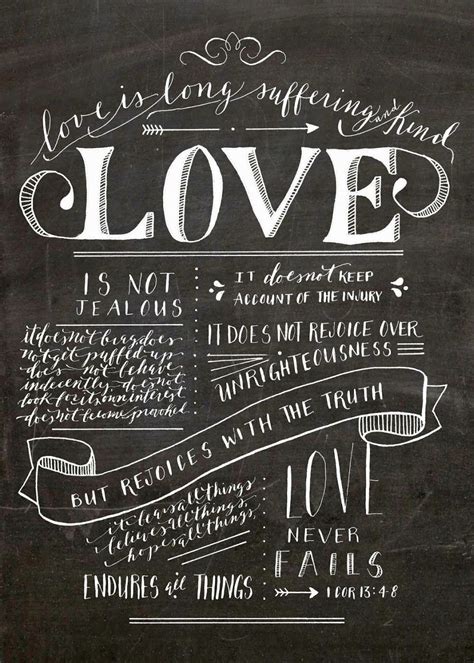 love is long suffering and kind
LOVE
IS NOT
JEALOUS
it does not brag does
not get puffed up
does not behave
indecently, does not
look for its own interest
does not become provoked
IT does not KEEP
ACCOUNT OF THE INJURY
IT DOES NOT REJOICE OVER
UNRIGHTEOUSNESS
BUT REJOICES WITH THE TRUTH
it bears all things
believes all things,
hopes all things,
ENDURES all THINGS
LOVE
NEVER
FAILS
1 COR 13:4-8